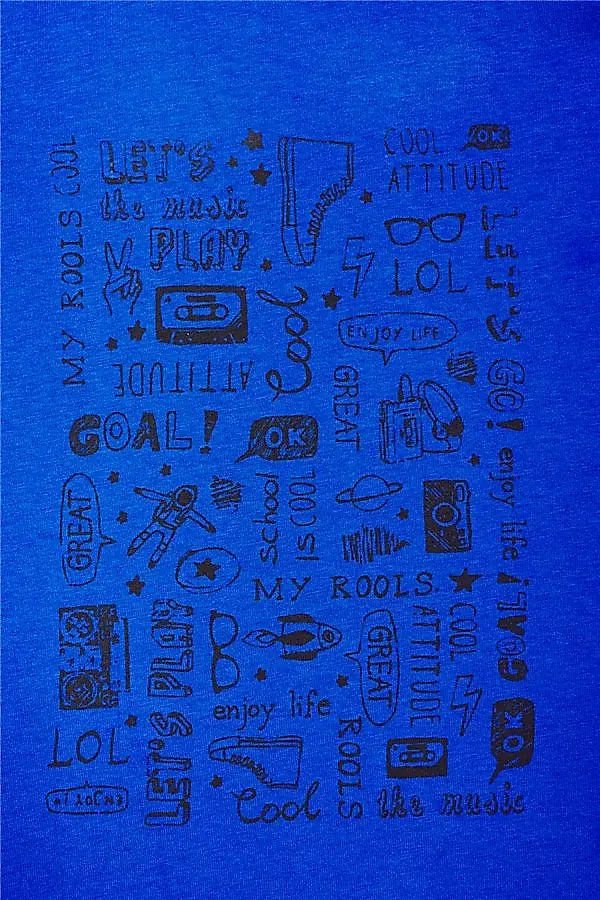 LET'S
the music
PLAY
COOL
MY ROOLS
COOL
OK
ATTITUDE
LOL
LET'S
Cool
ENJOY LIFE
ATTITUDE
GREAT
GO!
GOAL!
OK
enjoy life!
GREAT
School
IS COOL
MY ROOLS.
LET'S PLAY
GREAT
ATTITUDE
COOL
GOAL!
enjoy life
LOL
ROOLS
OK
ENJOY
Cool
the music